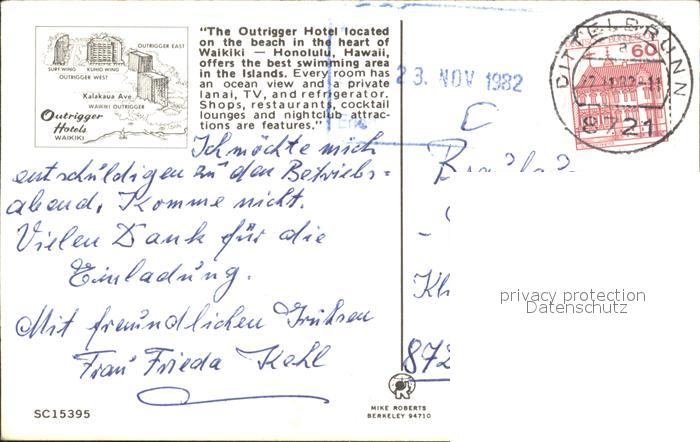 "The Outrigger Hotel located
on the beach in the heart of
Waikiki — Honolulu, Hawaii,
offers the best swimming area
in the Islands. Every room has
an ocean view and a private
lanai, TV, and refrigerator.
Shops, restaurants, cocktail
lounges and nightclub attrac-
tions are features."
OUTRIGGER EAST
SURFWING KUHIO WING
OUTRIGGER WEST
Kalakaua Ave.
WAIKIKI OUTRIGGER
Outrigger
Hotels
WAIKIKI
Ich möchte mich
entschuldigen zu den Betriebs=
abend. Komme nicht.
Vielen Dank für die
Einladung.
Mit freundlichen Grüssen
Frau Frieda Kohl
SC15395
23. NOV 1982
DITTELBRUNN
a
8721
60
Kl
872
MIKE ROBERTS
BERKELEY 94710
privacy protection
Datenschutz